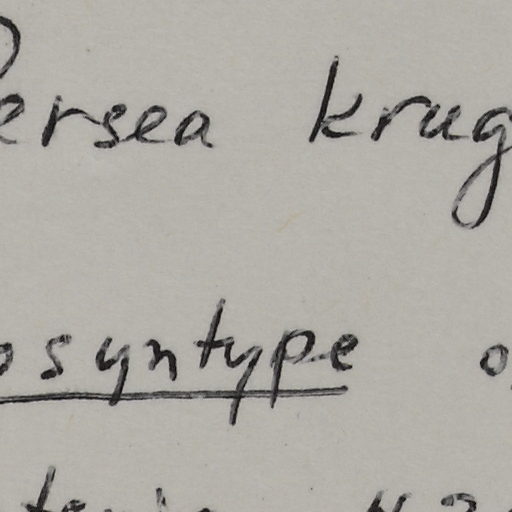 Persea krug
osyntype o